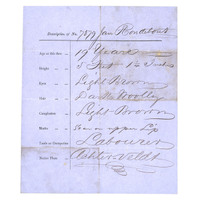 Description of No. 7879 Jan
Age on this Date 19 Years
Height 5 Feet
Eyes Light Brown
Hair Dark Woolly
Complexion Light Brown
Marks Scar on upper Lip
Trade or Occupation Labourer
Native Place Achter Veldt